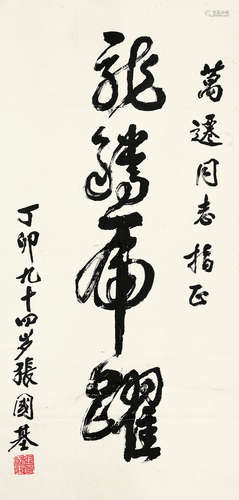 萬遷同志指正
龍騰虎躍
丁卯九十四岁張國基